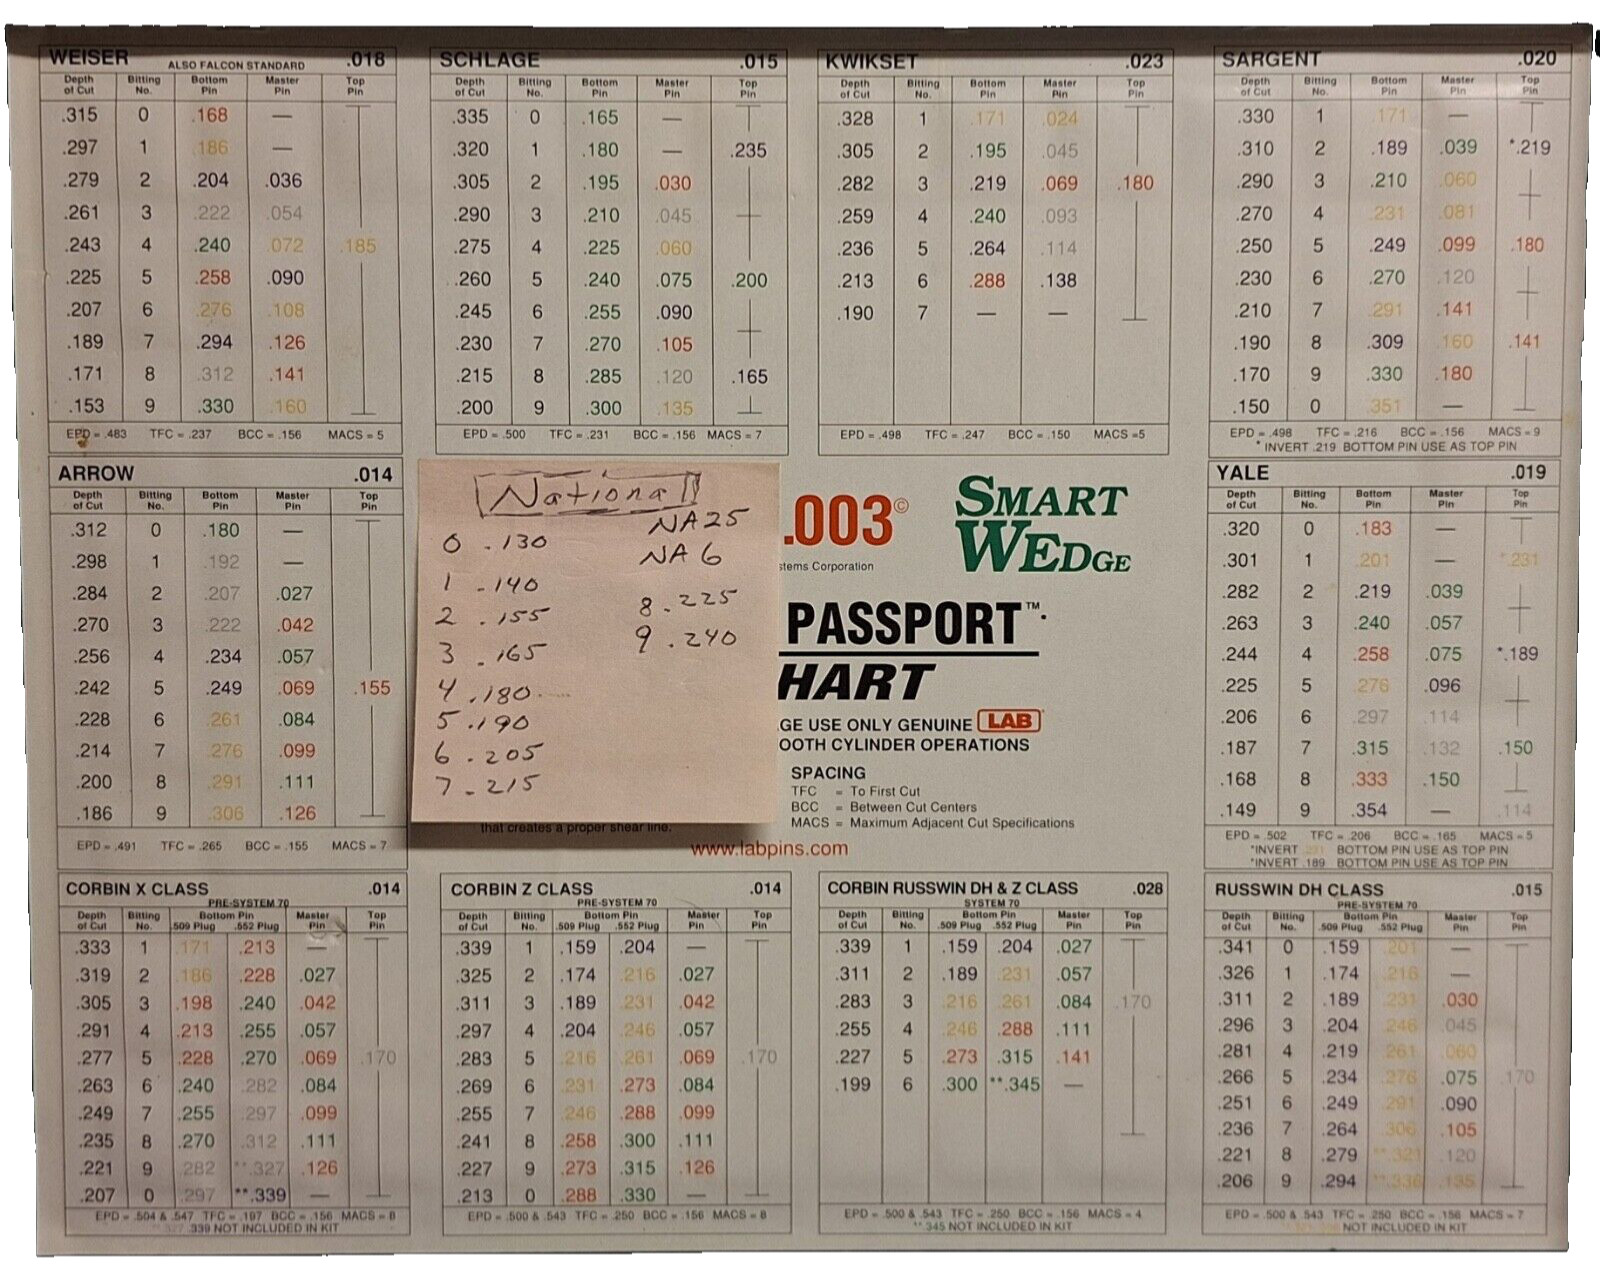 WEISER ALSO FALCON STANDARD .018
Depth of Cut Bitting No. Bottom Pin Master Pin Top Pin
.315 0 .168 —
.297 1 .186 —
.279 2 .204 .036
.261 3 .222 .054
.243 4 .240 .072 .185
.225 5 .258 .090
.207 6 .276 .108
.189 7 .294 .126
.171 8 .312 .141
.153 9 .330 .160
EPD = .483 TFC = .237 BCC = .156 MACS = 5
SCHLAGE .015
Depth of Cut Bitting No. Bottom Pin Master Pin Top Pin
.335 0 .165 —
.320 1 .180 — .235
.305 2 .195 .030
.290 3 .210 .045
.275 4 .225 .060
.260 5 .240 .075 .200
.245 6 .255 .090
.230 7 .270 .105
.215 8 .285 .120 .165
.200 9 .300 .135
EPD = .500 TFC = .231 BCC = .156 MACS = 7
KWIKSET .023
Depth of Cut Bitting No. Bottom Pin Master Pin Top Pin
.328 1 .171 .024
.305 2 .195 .045
.282 3 .219 .069 .180
.259 4 .240 .093
.236 5 .264 .114
.213 6 .288 .138
.190 7 — —
EPD = .498 TFC = .247 BCC = .150 MACS =5
SARGENT .020
Depth of Cut Bitting No. Bottom Pin Master Pin Top Pin
.330 1 .171 —
.310 2 .189 .039 *.219
.290 3 .210 .060
.270 4 .231 .081
.250 5 .249 .099 .180
.230 6 .270 .120
.210 7 .291 .141
.190 8 .309 .160 .141
.170 9 .330 .180
.150 0 .351 —
EPD = .498 TFC = .216 BCC = .156 MACS = 9
* INVERT .219 BOTTOM PIN USE AS TOP PIN
ARROW .014
Depth of Cut Bitting No. Bottom Pin Master Pin Top Pin
.312 0 .180 —
.298 1 .192 —
.284 2 .207 .027
.270 3 .222 .042
.256 4 .234 .057
.242 5 .249 .069 .155
.228 6 .261 .084
.214 7 .276 .099
.200 8 .291 .111
.186 9 .306 .126
EPD = .491 TFC = .265 BCC = .155 MACS = 7
National
NA25
NA6
0 .130
1 .140
2 .155
3 .165
4 .180
5 .190
6 .205
7 .215
8 .225
9 .240
.003©
stems Corporation
SMART WEDGE
PASSPORT™
HART
GE USE ONLY GENUINE LAB
OOTH CYLINDER OPERATIONS
SPACING
TFC = To First Cut
BCC = Between Cut Centers
MACS = Maximum Adjacent Cut Specifications
that creates a proper shear line.
www.labpins.com
YALE .019
Depth of Cut Bitting No. Bottom Pin Master Pin Top Pin
.320 0 .183 —
.301 1 .201 — *.231
.282 2 .219 .039
.263 3 .240 .057
.244 4 .258 .075 *.189
.225 5 .276 .096
.206 6 .297 .114
.187 7 .315 .132 .150
.168 8 .333 .150
.149 9 .354 — .114
EPD = .502 TFC = .206 BCC = .165 MACS = 5
*INVERT .231 BOTTOM PIN USE AS TOP PIN
*INVERT .189 BOTTOM PIN USE AS TOP PIN
CORBIN X CLASS .014
PRE-SYSTEM 70
Depth of Cut Bitting No. Bottom Pin .509 Plug .552 Plug Master Pin Top Pin
.333 1 .171 .213 —
.319 2 .186 .228 .027
.305 3 .198 .240 .042
.291 4 .213 .255 .057
.277 5 .228 .270 .069 .170
.263 6 .240 .282 .084
.249 7 .255 .297 .099
.235 8 .270 .312 .111
.221 9 .282 **.327 .126
.207 0 .297 **.339 —
EPD = .504 & .547 TFC = .197 BCC = .156 MACS = 8
**.327 .339 NOT INCLUDED IN KIT
CORBIN Z CLASS .014
PRE-SYSTEM 70
Depth of Cut Bitting No. Bottom Pin .509 Plug .552 Plug Master Pin Top Pin
.339 1 .159 .204 —
.325 2 .174 .216 .027
.311 3 .189 .231 .042
.297 4 .204 .246 .057
.283 5 .216 .261 .069 .170
.269 6 .231 .273 .084
.255 7 .246 .288 .099
.241 8 .258 .300 .111
.227 9 .273 .315 .126
.213 0 .288 .330 —
EPD = .500 & .543 TFC = .250 BCC = .156 MACS = 8
CORBIN RUSSWIN DH & Z CLASS .028
SYSTEM 70
Depth of Cut Bitting No. Bottom Pin .509 Plug .552 Plug Master Pin Top Pin
.339 1 .159 .204 .027
.311 2 .189 .231 .057
.283 3 .216 .261 .084 .170
.255 4 .246 .288 .111
.227 5 .273 .315 .141
.199 6 .300 **.345 —
EPD = .500 & .543 TFC = .250 BCC = .156 MACS = 4
**.345 NOT INCLUDED IN KIT
RUSSWIN DH CLASS .015
PRE-SYSTEM 70
Depth of Cut Bitting No. Bottom Pin .509 Plug .552 Plug Master Pin Top Pin
.341 0 .159 .201 —
.326 1 .174 .216 —
.311 2 .189 .231 .030
.296 3 .204 .246 .045
.281 4 .219 .261 .060
.266 5 .234 .276 .075 .170
.251 6 .249 .291 .090
.236 7 .264 .306 .105
.221 8 .279 **.321 .120
.206 9 .294 **.336 .135
EPD = .500 & .543 TFC = .250 BCC = .156 MACS = 7
NOT INCLUDED IN KIT